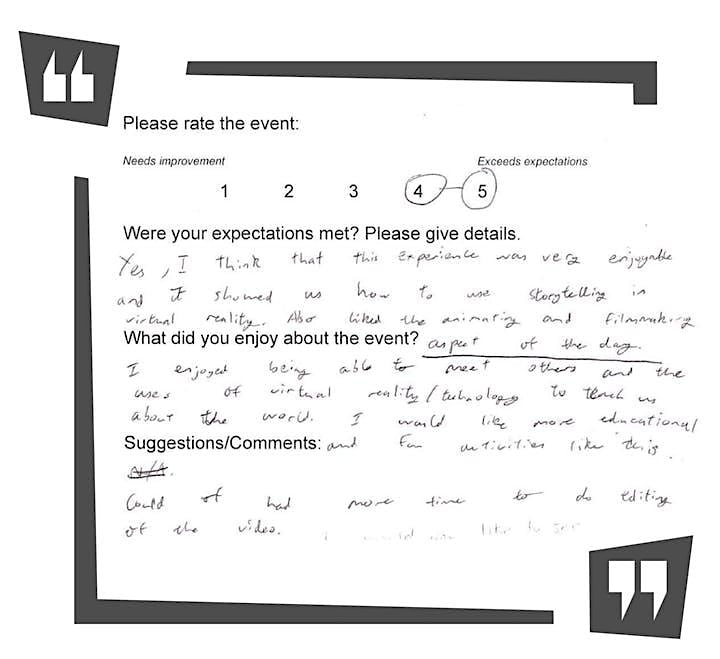 Please rate the event:
Needs improvement Exceeds expectations
1 2 3 4 5
Were your expectations met? Please give details.
Yes, I think that this experience was very enjoyable
and it showed us how to use storytelling in
virtual reality. Also liked the animating and filmmaking
What did you enjoy about the event? aspect of the day.
I enjoyed being able to meet others and the
uses of virtual reality/technology to teach us
about the world. I would like more educational
Suggestions/Comments: and fun activities like this.
N/A.
Could of had more time to do editing
of the video. I would like to see